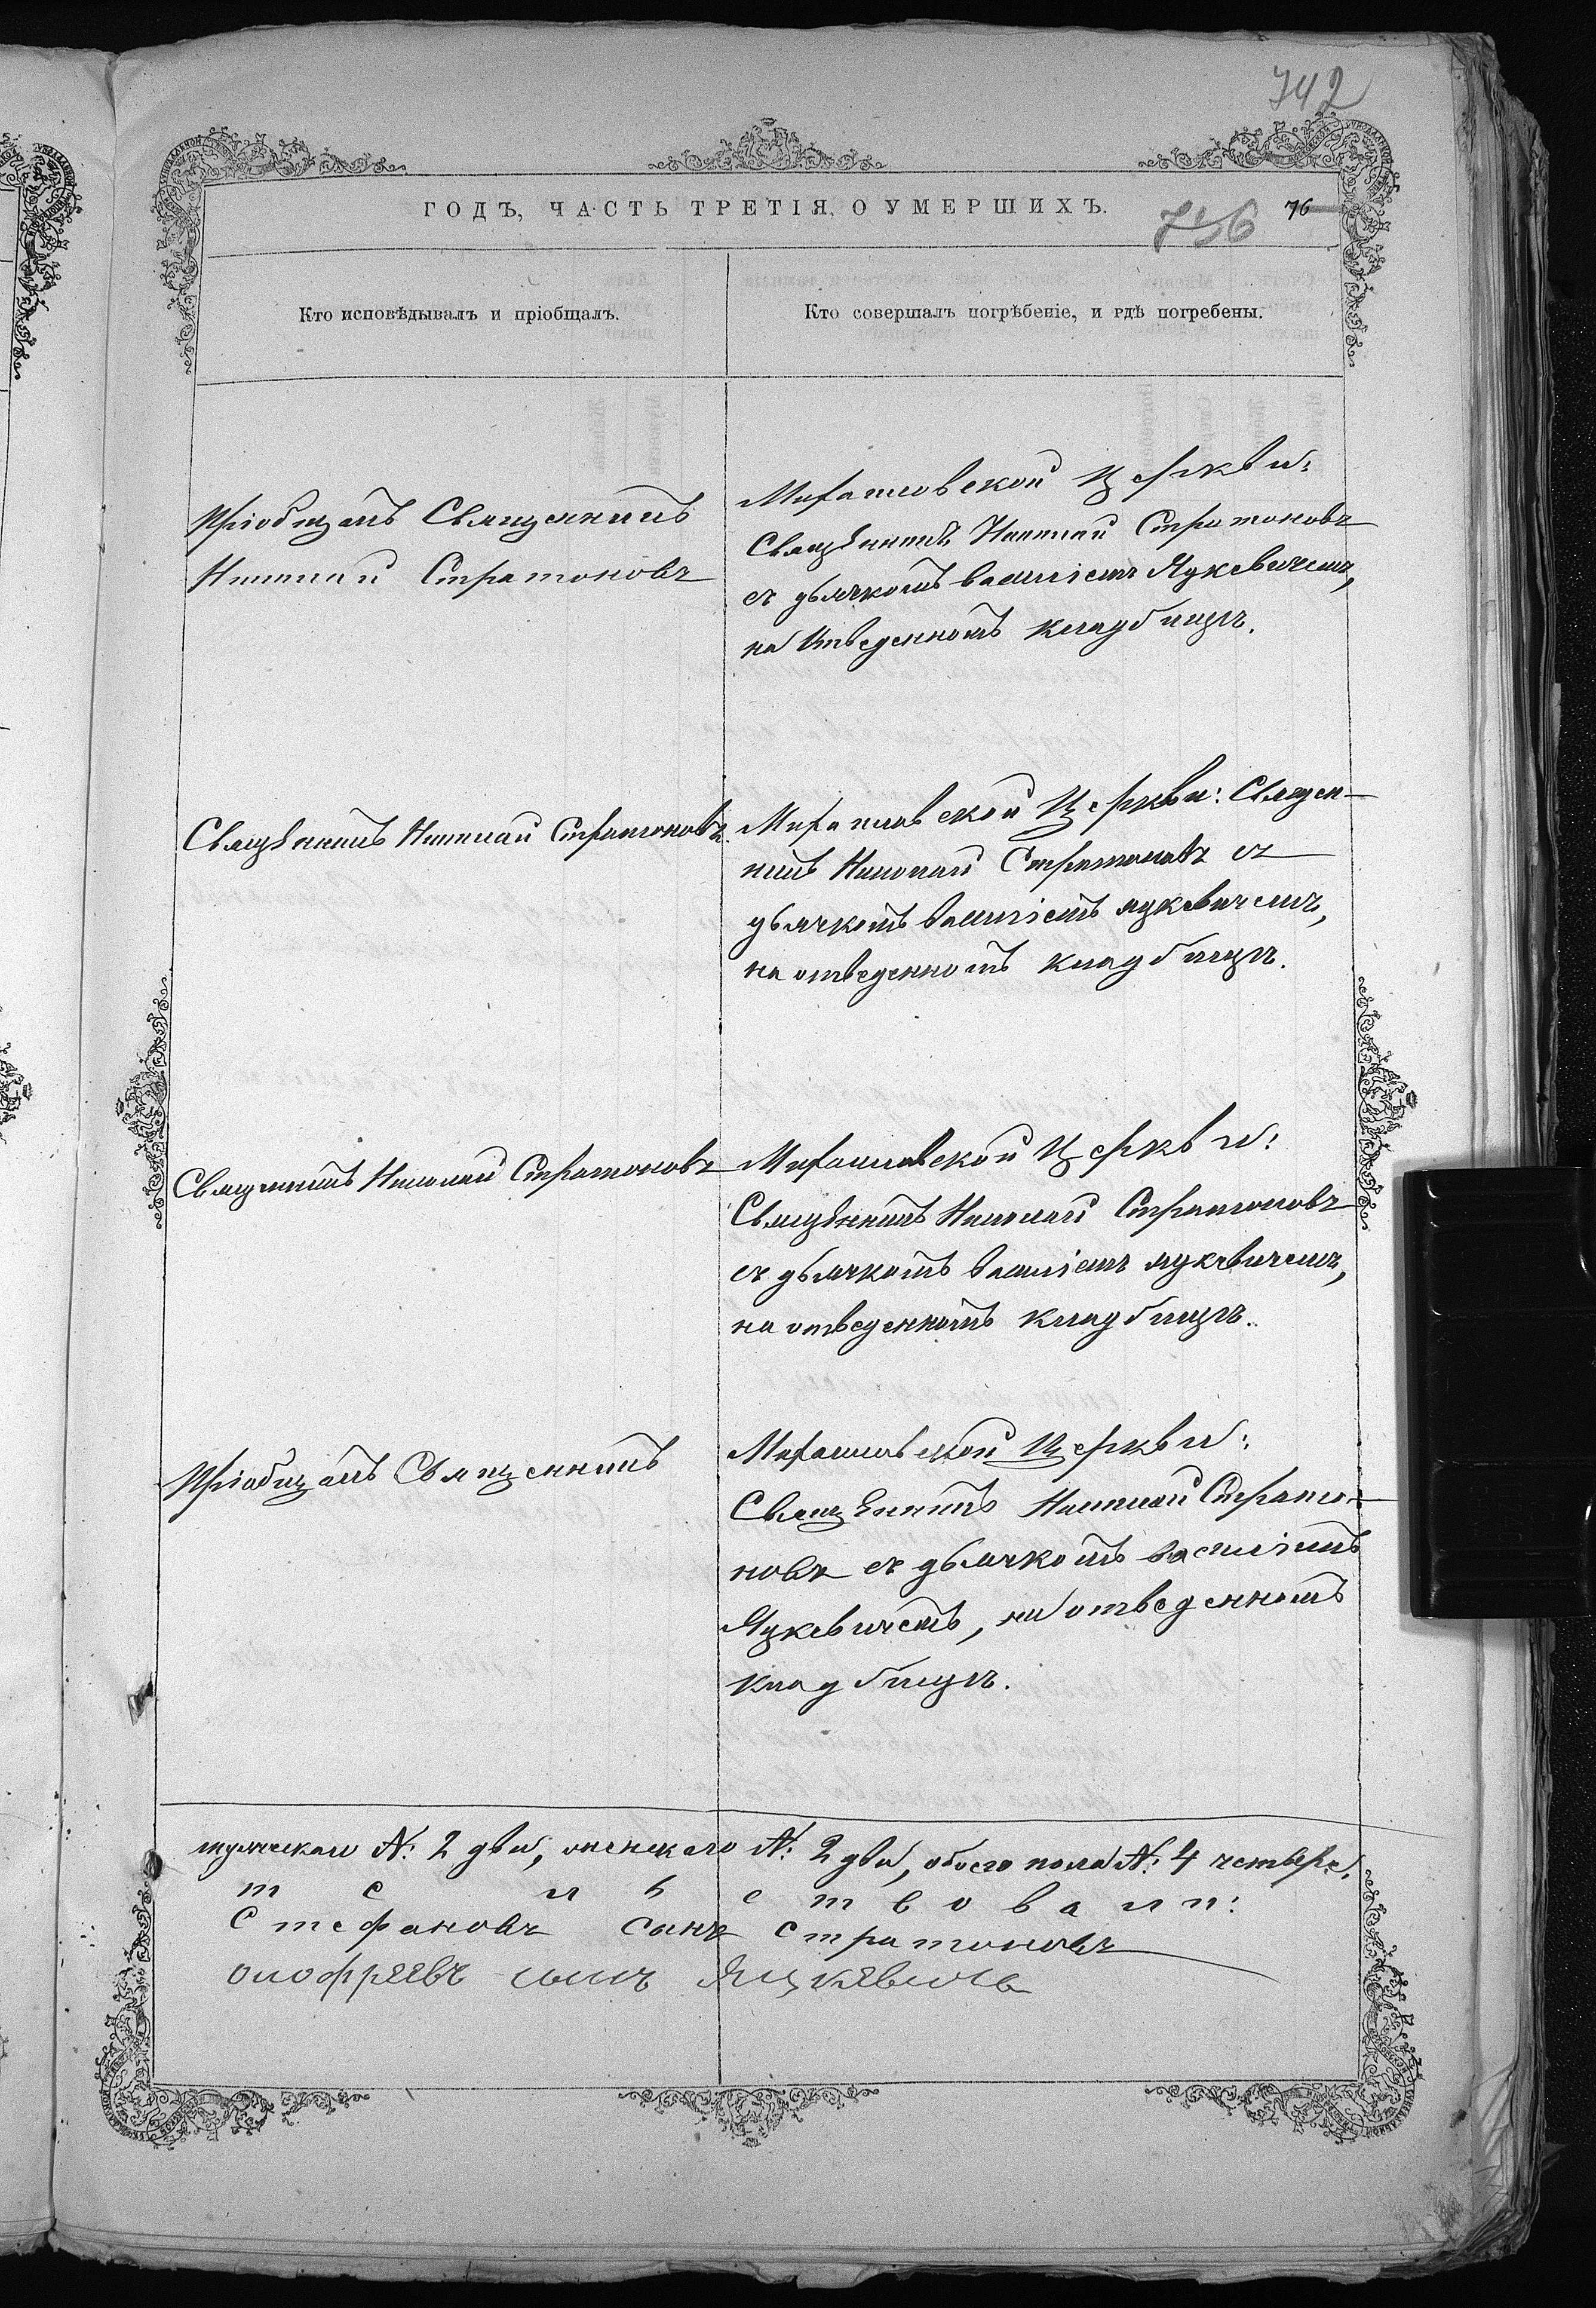 742
ГОДЪ, ЧАСТЬ ТРЕТІЯ, О УМЕРШИХЪ.
756 76
Кто исповѣдывалъ и пріобщалъ.
Кто совершалъ погрѣбеніе, и гдѣ погребены.
Пріобщалъ Священникъ
Николай Стратоновъ
Церкви:
Священникъ Николай Стратоновъ
съ дьячкомъ Василіемъ Яцкевичемъ,
на отведенномъ кладбищѣ.
Священникъ Николай Стратоновъ.
Церкви: Священ-
никъ Николай Стратоновъ съ
дьячкомъ Василіемъ Яцкевичемъ,
на отведенномъ кладбищѣ.
Священникъ Николай Стратоновъ
Церкви:
Священникъ Николай Стратоновъ
съ дьячкомъ Василіемъ Яцкевичемъ,
на отведенномъ кладбищѣ.
Пріобщалъ Священникъ
Церкви:
Священникъ Николай Страто-
новъ съ дьячкомъ Василіемъ
Яцкевичемъ, на отведенномъ
кладбищѣ.
мужескаго №: 2 два, женскаго №: 2 два, обоего пола №: 4 четыре.
т е л ь с т в о в а л и:
Стефановъ сынъ Стратоновъ
Онофреевъ сынъ Яцкевичь